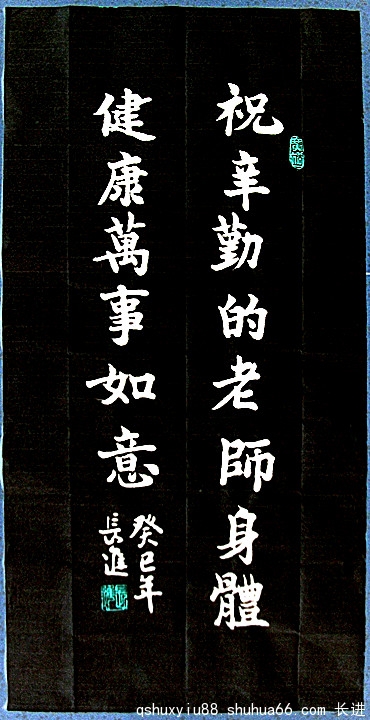 祝辛勤的老師身體
健康萬事如意
癸巳年
長進
qshuxyiu88.shuhua66.com 长进